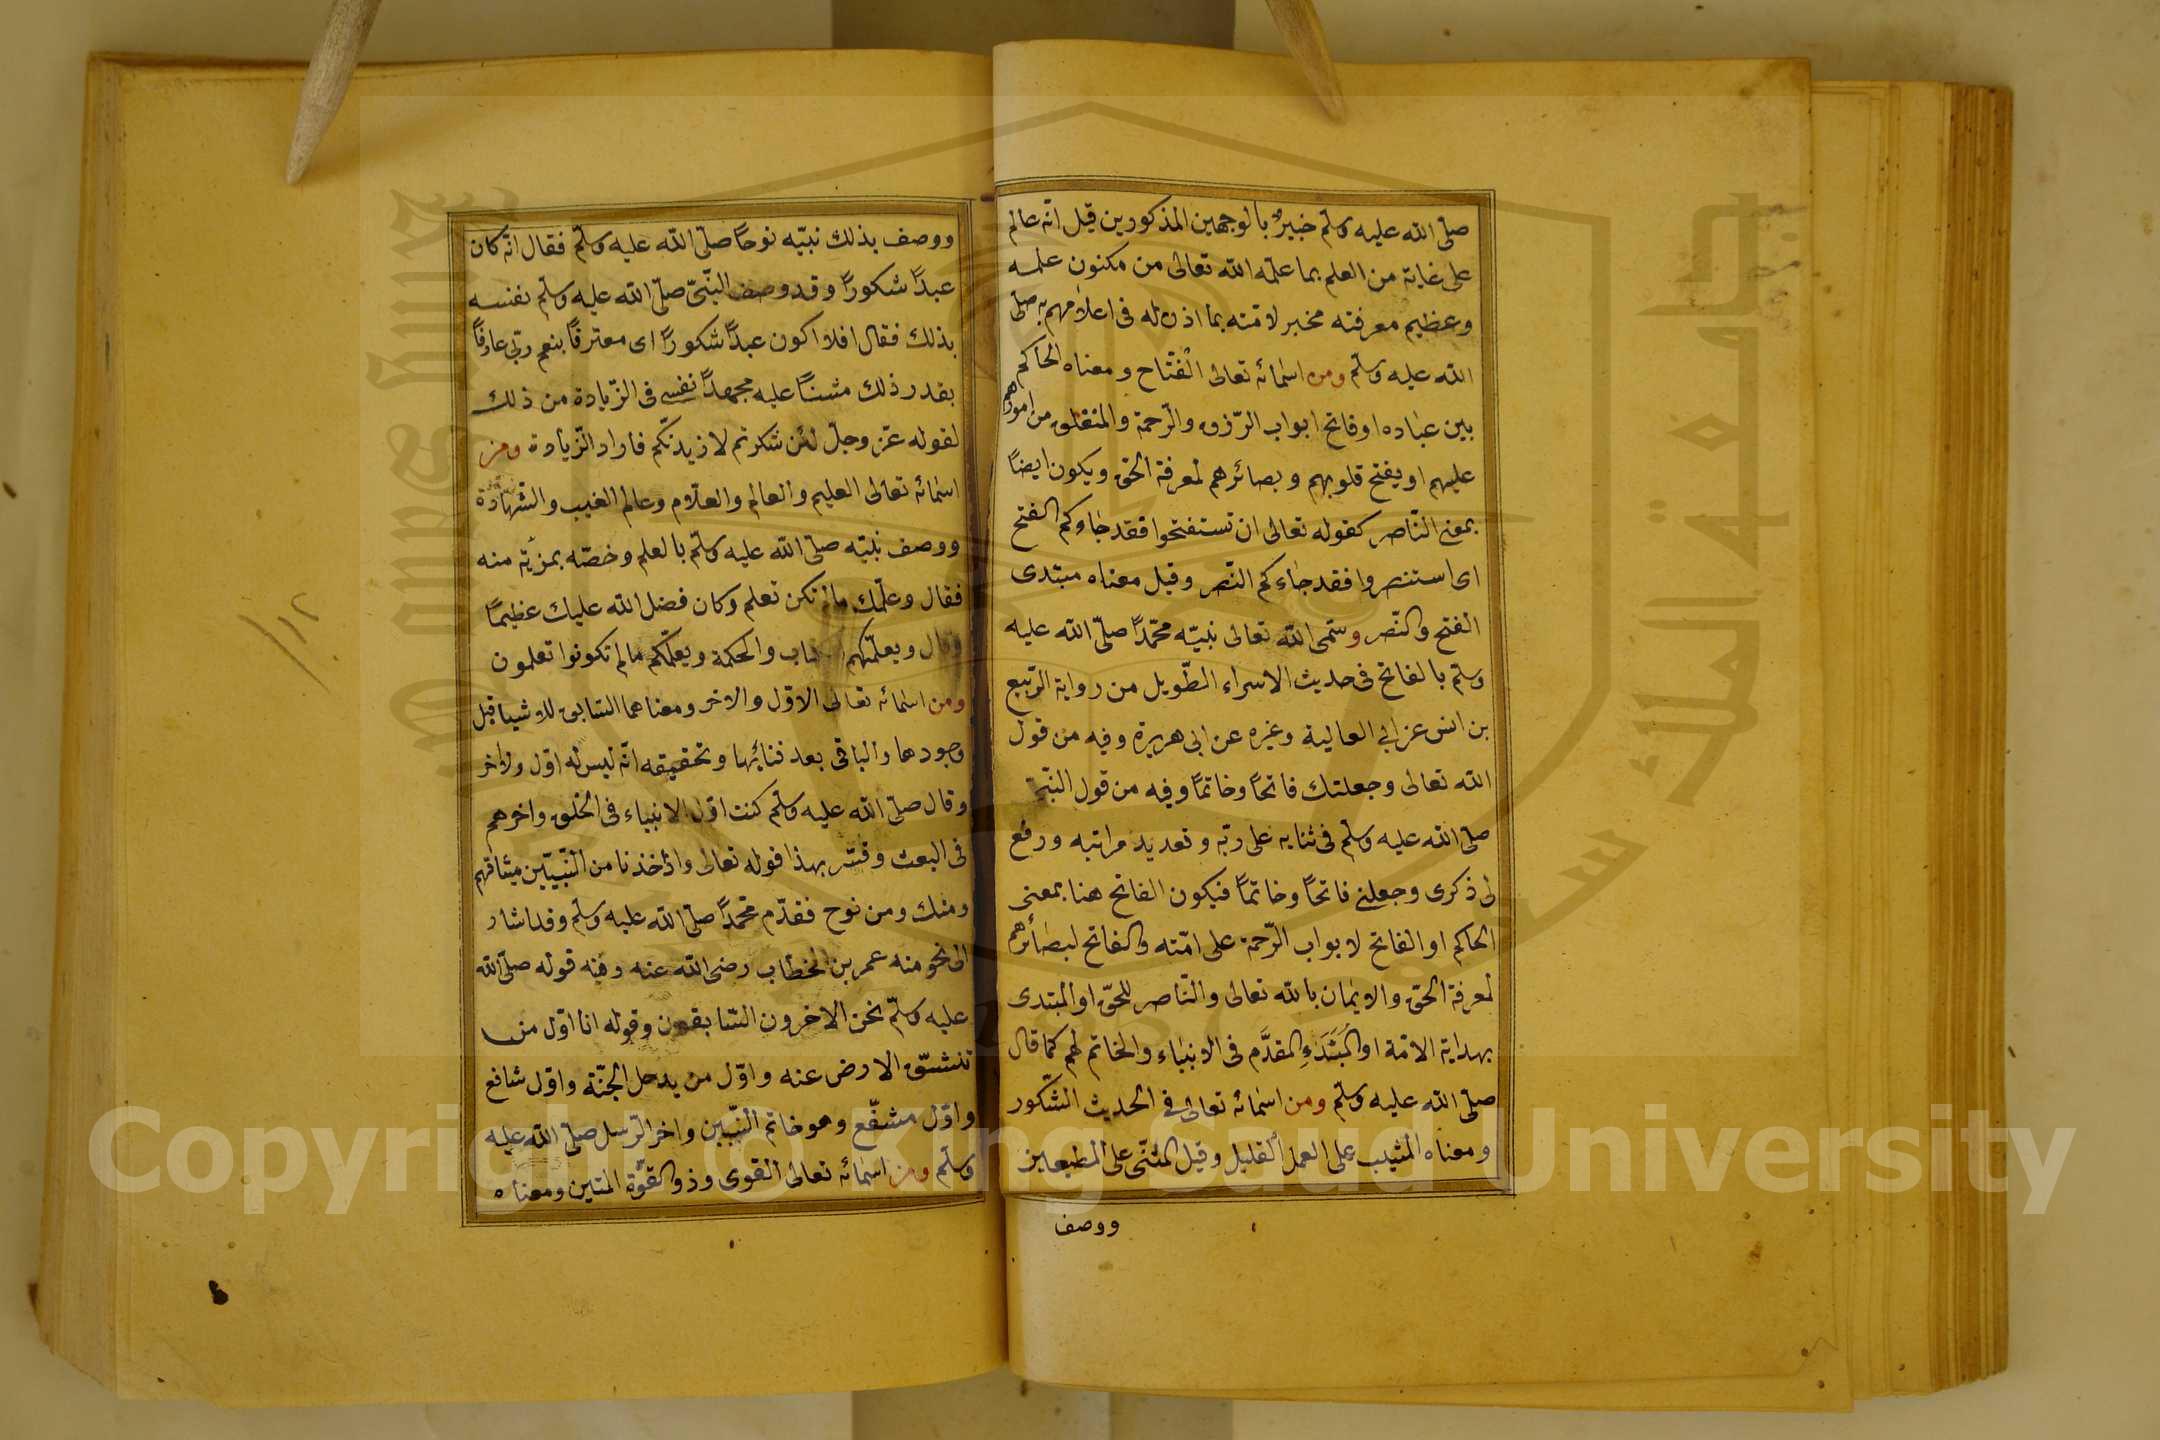 صلّى الله عليه وسلّم خبيرٌ بالوجهين المذكورين قيل انّه عالم
على غاية من العلم بما علّمه الله تعالى من مكنون علمه
وعظيم معرفته مخبر لامّته بما اذن له فى اعلامهم به صلّى
الله عليه وسلّم ومن اسمائه تعالى الفتّاح ومعناه الحاكم
بين عباده او فاتح ابواب الرّزق والرّحمة والمنغلق من امورهم
عليهم او يفتح قلوبهم وبصائرهم لمعرفة الحق ويكون ايضًا
بمعنى النّاصر كقوله تعالى ان تستفتحوا فقد جاءكم الفتح
اى استنصروا فقد جاءكم النّصر وقيل معناه مبتدى
الفتح والنّصر وسمّى الله تعالى نبيّه محمّدًا صلّى الله عليه
وسلّم بالفاتح فى حديث الاسراء الطّويل من رواية الرّبيع
بن انس عن ابي العالية وغيره عن ابى هريرة وفيه من قول
الله تعالى وجعلتك فاتحًا وخاتمًا وفيه من قول النّبى
صلّى الله عليه وسلّم فى ثنايه على ربّه وتعديد مراتبه ورفع
لى ذكرى وجعلنى فاتحًا وخاتمًا فيكون الفاتح هنا بمعنى
الحاكم او الفاتح لابواب الرّحمة على امّته والفاتح لبصائرهم
لمعرفة الحقّ والايمان بالله تعالى والنّاصر للحقّ او المبتدى
بهداية الامّة او المُبَتَدَءِ المقدَّم فى الانبياء والخاتم لهم كما قال
صلّى الله عليه وسلّم ومن اسمائه تعالى فى الحديث الشّكور
ومعناه المثيب على العمل القليل وقيل المثنّى على المطيعين
ووصف
ووصف بذلك نبيّه نوحًا صلّى الله عليه وسلّم فقال انّه كان
عبدًا شكورًا وقد وصف النّبىّ صلّى الله عليه وسلّم نفسه
بذلك فقال افلا اكون عبدًا شكورًا اى معترفًا بنعم ربّى عارفًا
بقدر ذلك مثنيًا عليه مجهدًا نفسى فى الزّيادة من ذلك
لقوله عزّ وجلّ لئن شكرتم لازيدنّكم فاراد الزّيادة ومن
اسمائه تعالى العليم والعالم والعلّام وعالم الغيب والشّهادة
ووصف نبيّه صلّى الله عليه وسلّم بالعلم وخصّه بمزيّة منه
فقال وعلّمك مالم تكن تعلم وكان فضل الله عليك عظيمًا
وقال ويعلّمكم الكتاب والحكمة ويعلّمكم مالم تكونوا تعلمون
ومن اسمائه تعالى الاوّل والاخر ومعناهما السّابق للاشيا قبل
وجودها والباقى بعد فنائها وتحقيقه انّه ليس له اوّل ولا اخر
وقال صلّى الله عليه وسلّم كنت اوّل الانبياء فى الخلق واخرهم
فى البعث وفسّر بهذا قوله تعالى واذ اخذنا من النّبيّين ميثاقهم
ومنك ومن نوح فقدّم محمّدًا صلّى الله عليه وسلّم وقد اشار
الى نحو منه عمر بن الخطّاب رضى الله عنه ومنه قوله صلّى الله
عليه وسلّم نحن الاخرون السّابقون وقوله انا اوّل من
تنشقّ الارض عنه واوّل من يدخل الجنّة واوّل شافع
واوّل مشفّع وهو خاتم النّبيّين واخر الرّسل صلّى الله عليه
وسلّم ومن اسمائه تعالى القوى وذو القوّة المتين ومعناه
١١٢
جامعة الملك سعود
Copyright © King Saud University